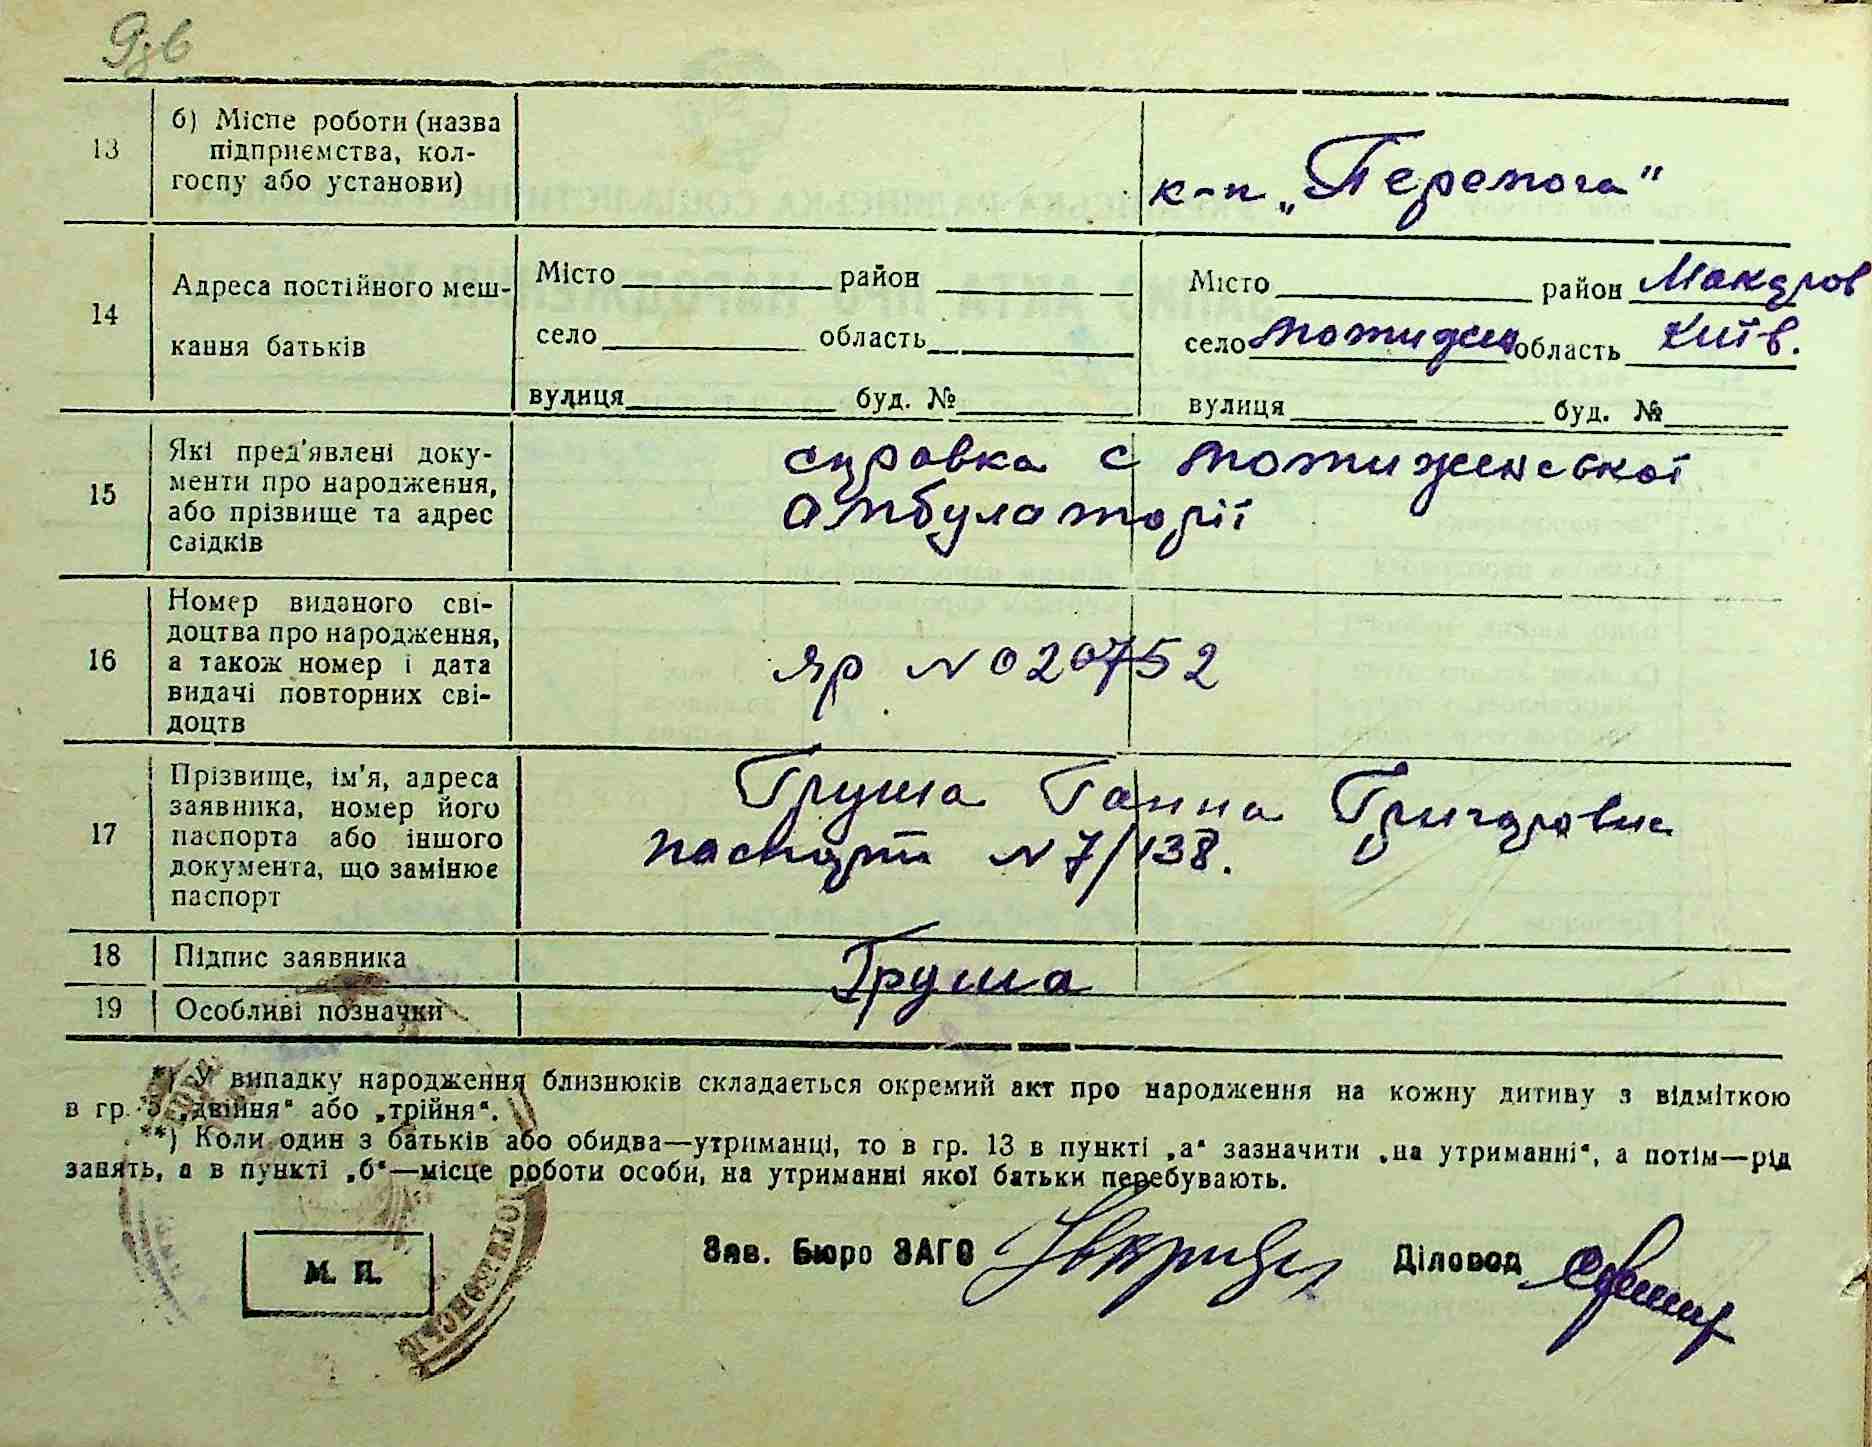 13 б) Місце роботи (назва
підприємства, кол-
госпу або установи)
к-п „Перемога"
14 Адреса постійного меш-
кання батьків
Місто район
село область
вулиця буд. №
Місто район Макаров
село Мотижин область Київ.
вулиця буд. №
15 Які пред'явлені доку-
менти про народження,
або прізвище та адрес
свідків
справка с Мотиженської
амбулаторії
16 Номер виданого сві-
доцтва про народження,
а також номер і дата
видачі повторних сві-
доцтв
ЯР N 020752
17 Прізвище, ім'я, адреса
заявника, номер його
паспорта або іншого
документа, що замінює
паспорт
Груша Ганна Григоровна
паспорт N 7/138.
18 Підпис заявника Груша
19 Особливі позначки
*) У випадку народження близнюків складається окремий акт про народження на кожну дитину з відміткою
в гр. 5 „двійня" або „трійня".
**) Коли один з батьків або обидва—утриманці, то в гр. 13 в пункті „а" зазначити „на утриманні", а потім—рід
занять, а в пункті „б"—місце роботи особи, на утриманні якої батьки перебувають.
М. П.
Зав. Бюро ЗАГС Діловод